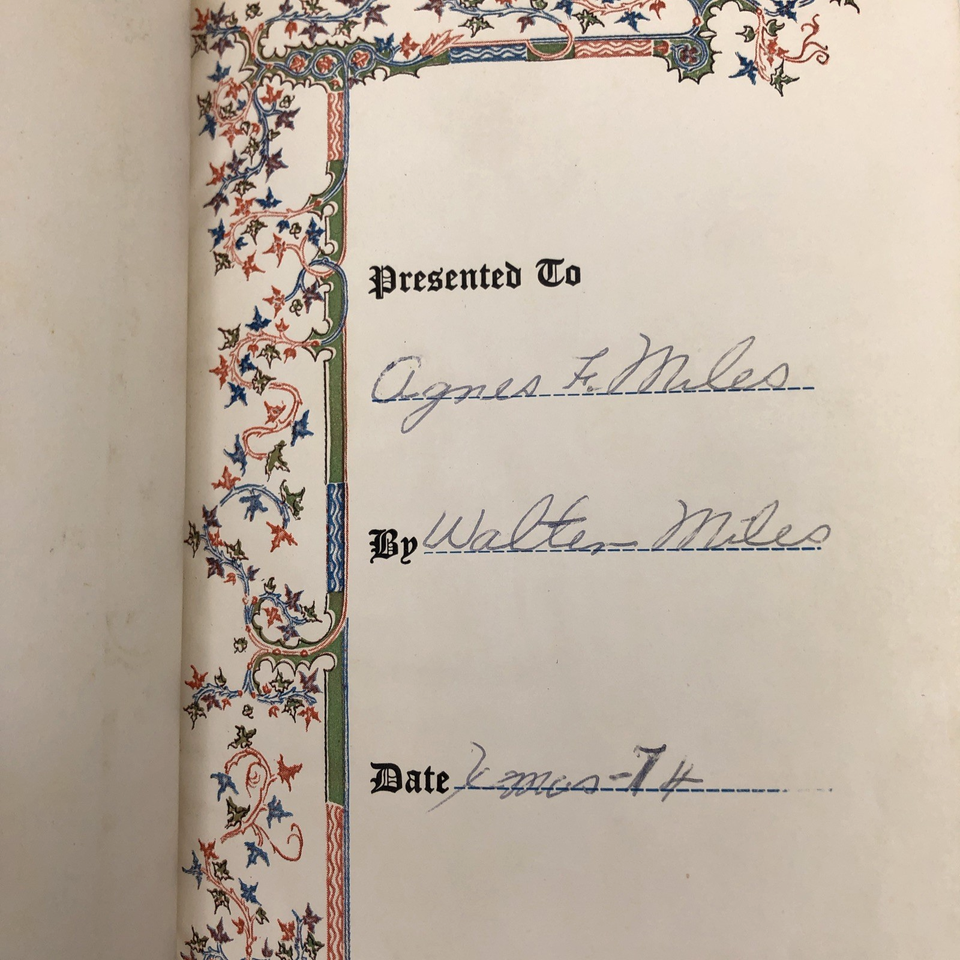 Presented To
Agnes F. Miles
By Walter Miles
Date Xmas-74